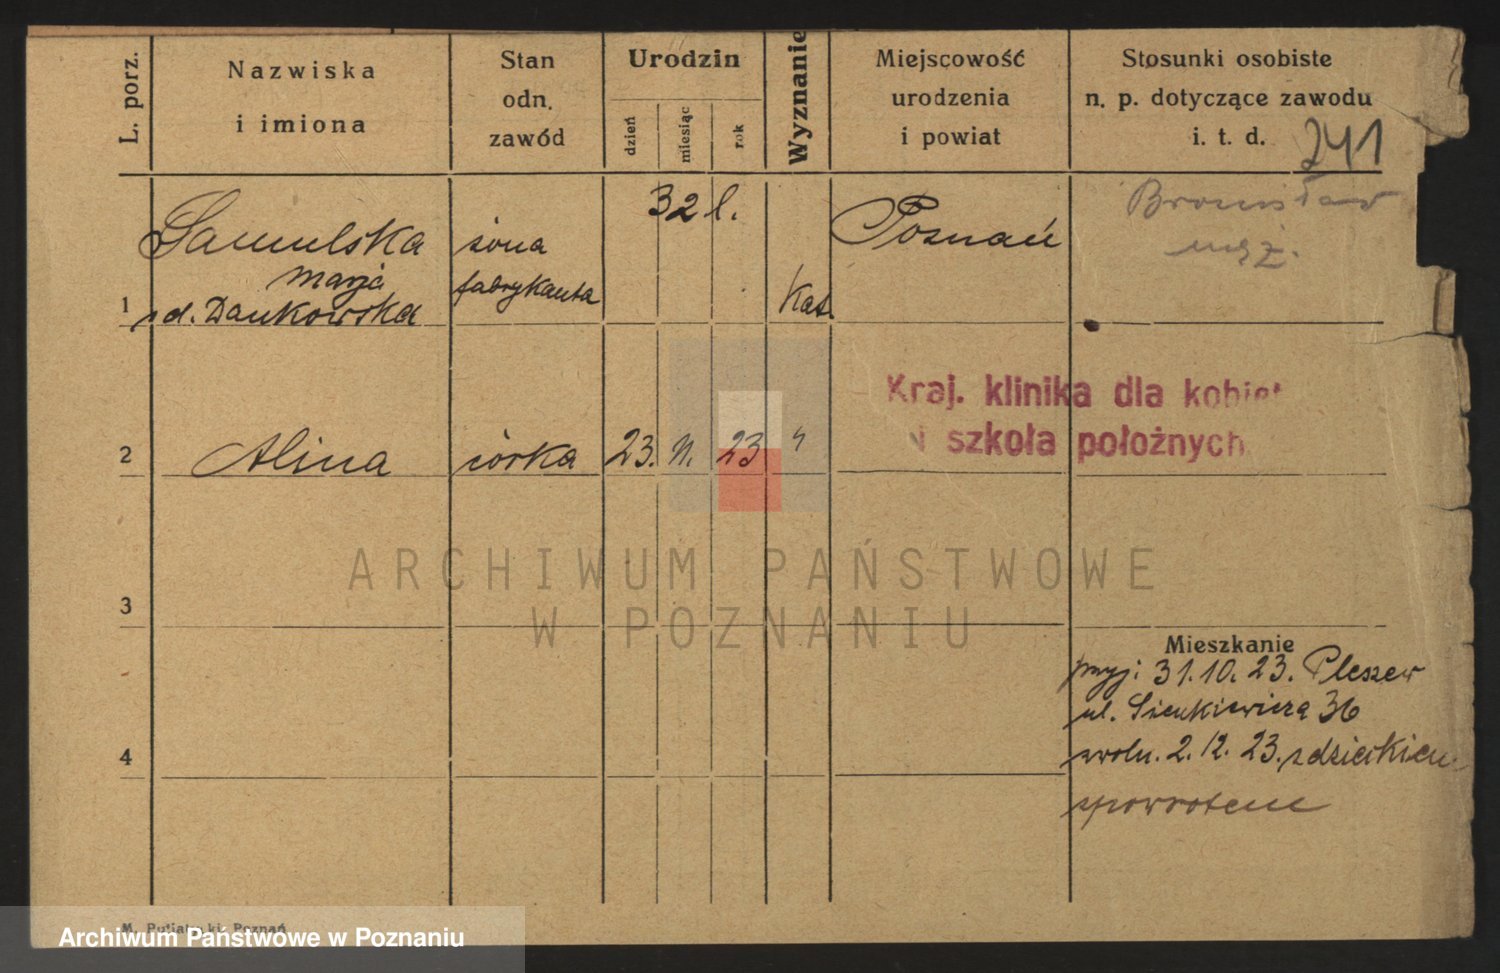 L. porz.
Nazwiska
i imiona
Stan
odn.
zawód
Urodzin
dzień
miesiąc
rok
Wyznanie
Miejscowość
urodzenia
i powiat
Stosunki osobiste
n. p. dotyczące zawodu
i. t. d.
241
1
Samulska
Marja
żona
fabrykanta
32 l.
Kat.
Poznań
Bronisław
mąż.
Kraj. klinika dla kobiet
i szkoła położnych
2
Alina
córka
23.
11.
23
"
ARCHIWUM PAŃSTWOWE
W POZNANIU
3
4
Mieszkanie
przyj: 31.10.23. Pleszew
ul. Sienkiewicza 36
zwoln. 2.12.23. z dzieckiem
zpowrotem
M. Putiatycki, Poznań
Archiwum Państwowe w Poznaniu